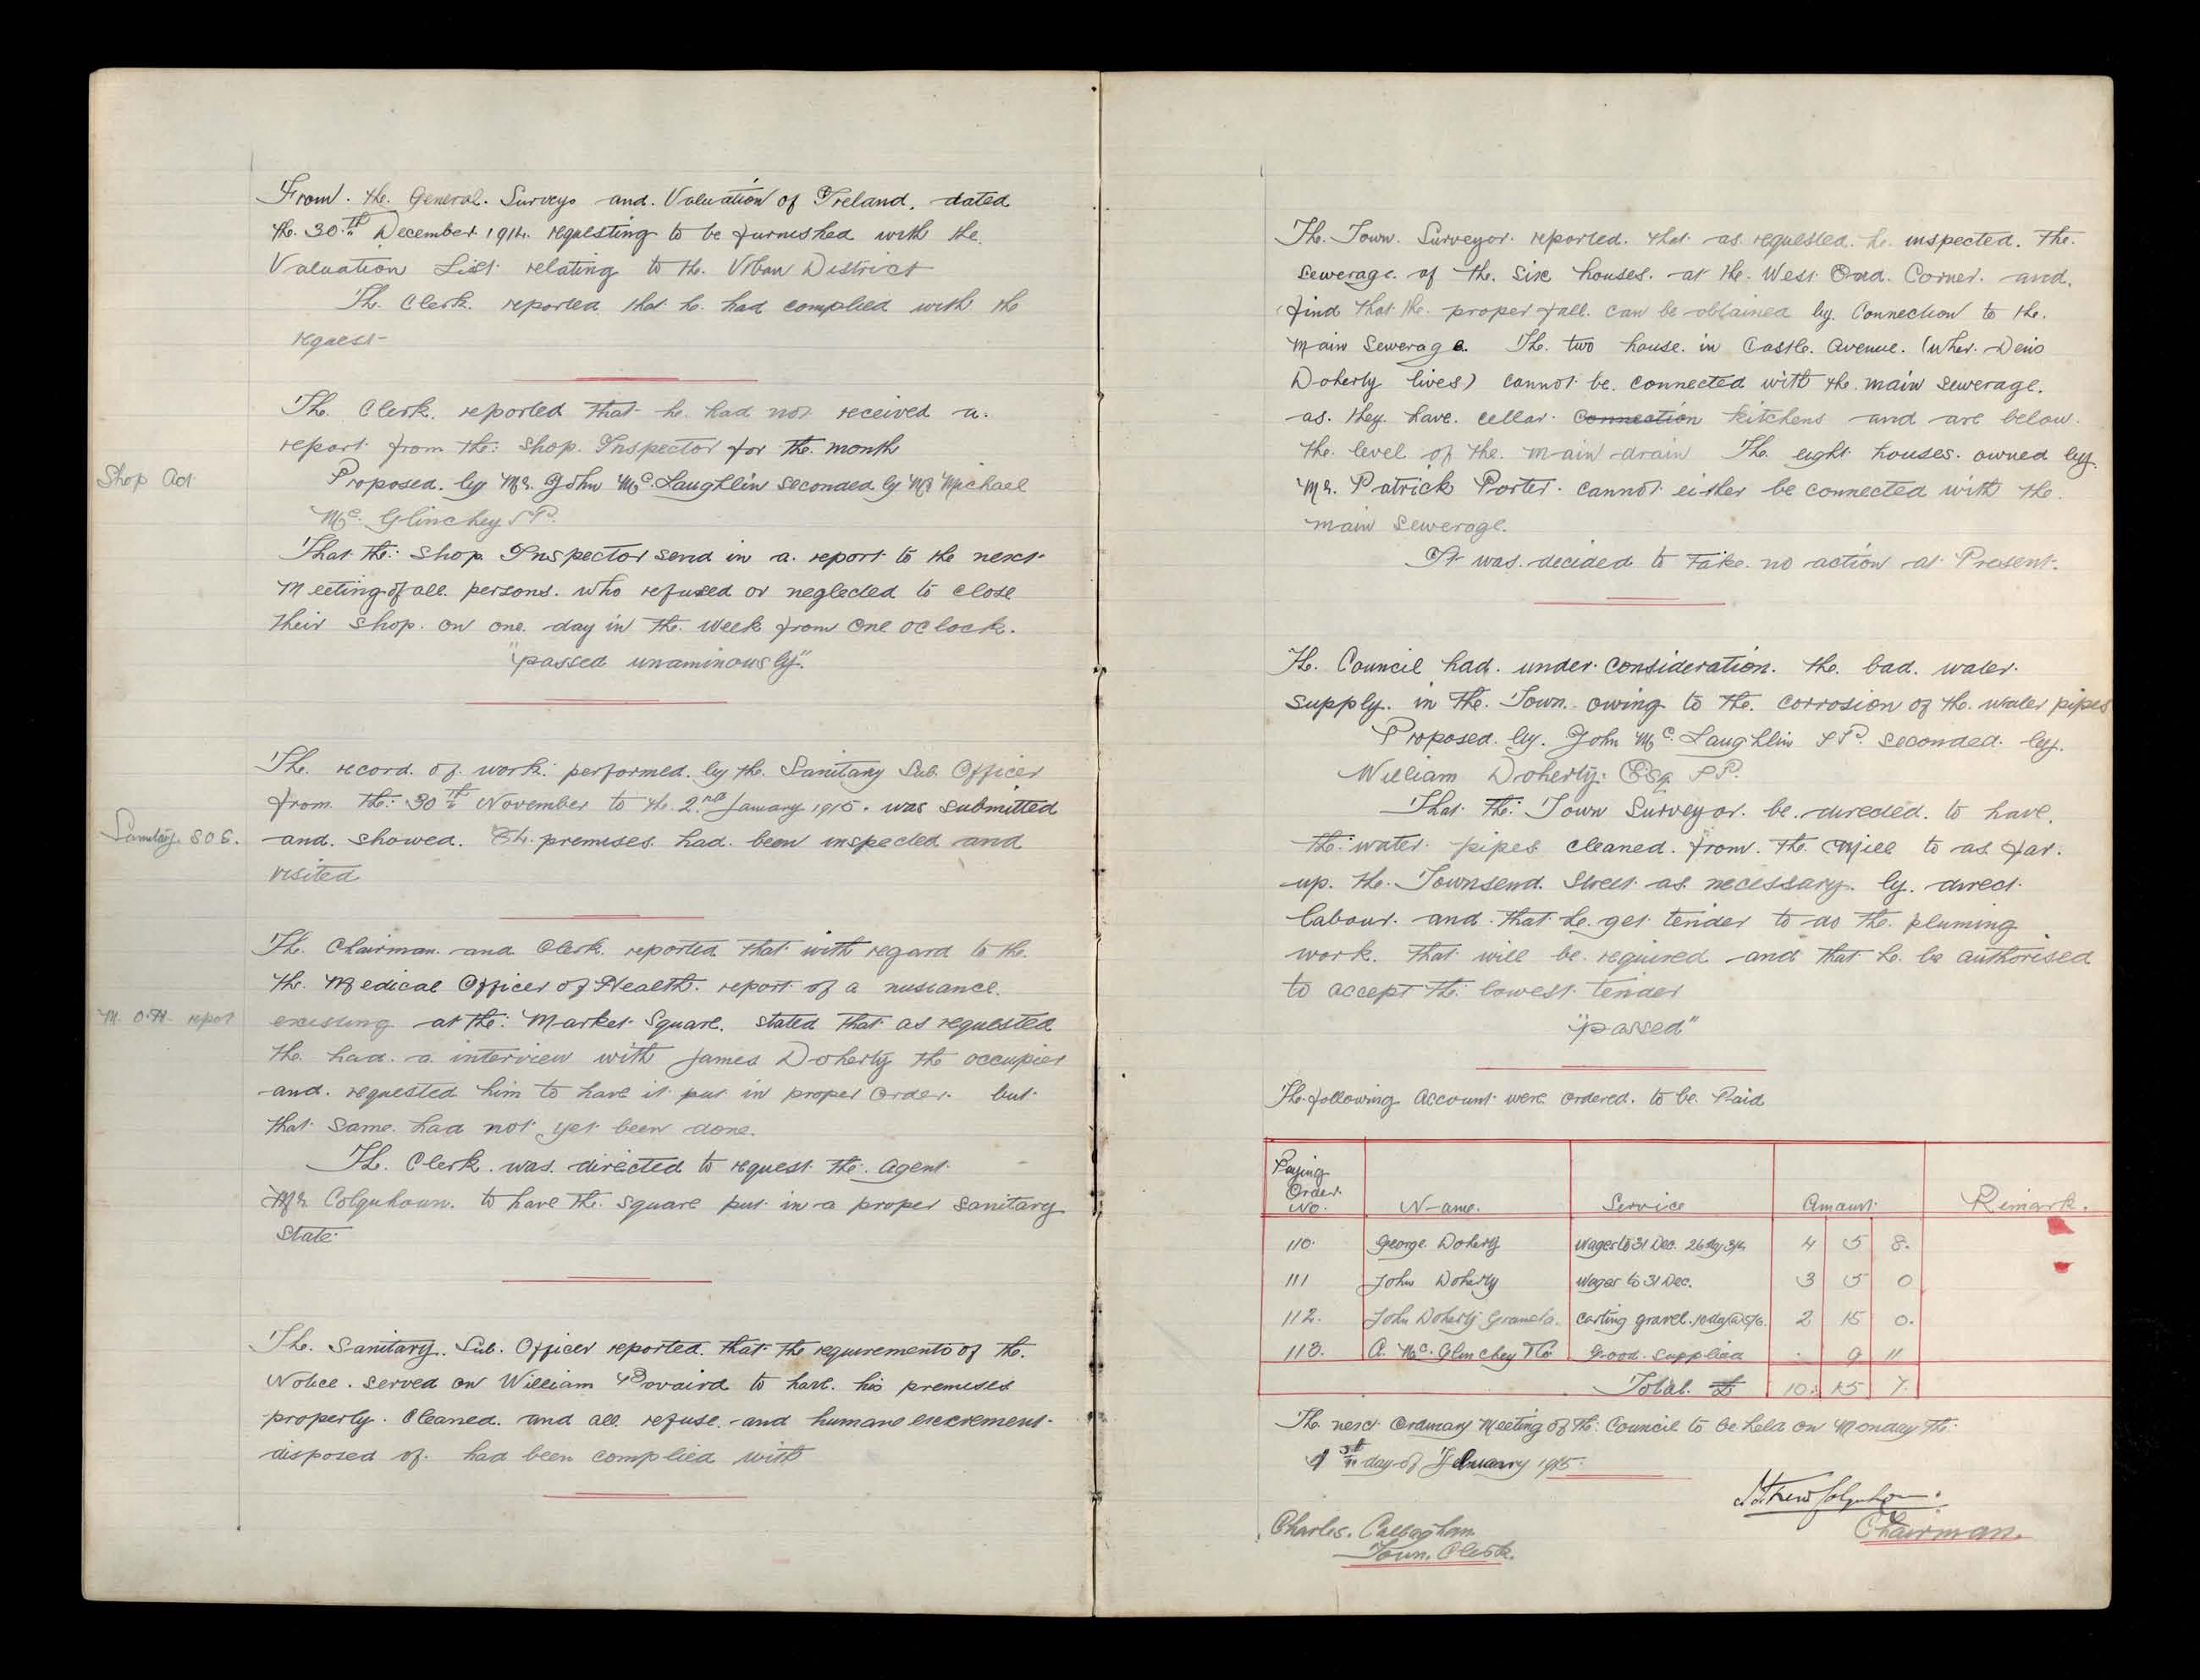 From. the. General. Survey. and. Valuation of Ireland. dated
the. 30.th December. 1914. requesting to be furnished with the.
Valuation List relating to the. Urban District
The. Clerk. reported that he. had complied with the
request
The. Clerk. reported that he. had not received a.
report from the: Shop. Inspector for the. month
Shop Act
Proposed. by Mr. John McLaughlin seconded by Mr Michael
Mc. Glinchey J P.
That the: Shop. Inspector send in a. report to the next
Meeting of all persons. who refused or neglected to close
their shop. on one. day in the week from one oclock.
"passed unaminously".
The. record. of work. performed. by the. Sanitary Sub. Officer
from the: 30th November to the. 2.nd January 1915. was submitted
Sanitary. S O S.
and. showed. 84. premises had. been inspected and
visited
The. Chairman. and Clerk. reported that with regard to the.
the. Medical Officer of Health. report of a nusiance.
M. O. H. report
existing at the: Market Square. stated that as requested
the. had. a interview with James Doherty the occupier
and. requested him to have it put in proper order. but
that same. had not yet been done.
The. Clerk. was. directed to request the. agent.
Mr Colquhoun. to have the. square put in a proper sanitary
State
The. Sanitary. Sub. Officer reported. that the requirements of the.
Notice. served on William Bovaird to have. his premises
properly. Cleaned. and all refuse. and humane excrement.
disposed of. had been complied with
The. Town. Surveyor. reported. that as requested. he. inspected. the.
sewerage. of the. six houses. at the. West End. Corner. and.
find that the. proper fall can be obtained by. Connection to the.
main Sewerage. The. two house. in Castle. Avenue. (wher. Denis
Doherty lives) cannot be. connected with the. main sewerage.
as. they. have. cellar. Connection kitchens and are below.
the. level of the. main drain The. eight houses. owned by.
Mr. Patrick Porter. cannot either be connected with the.
main sewerage.
It was. decided to take. no action at Present.
The. Council had. under consideration. the. bad. water.
supply. in the. Town. owing to the. corrosion of the. water pipes
Proposed. by. John McLaughlin J P. seconded. by.
William Doherty: Esq. J P.
That. the: Town Surveyor. be. directed. to have.
the: water. pipes cleaned. from. the. Mill to as. far.
up. the. Townsend. Street as. necessary. by. direct.
labour. and. that he. get tender to do the. pluming
work. that will be. required and that he. be authorised
to accept the: lowest. tender
"passed"
The following Account were ordered. to be. Paid
Paying
Order.
No. Name. Service Amount. Remark.
110. George. Doherty Wages to 31 Dec. 26 dy 3/4 4 5 8.
111 John Doherty Wages to 31 Dec. 3 5 0
112. John Doherty Carting gravel. 10 dy @ 5/6. 2 15 0.
113. A. Mc. Glinchey & Co. Good. supplied . 9 11
Total. £ 10. 15 7.
The next Ordinary Meeting of the: Council to be held on Monday the
1st day of February 1915.
Chairman.
Charles. Callaghan.
Town. Clerk.